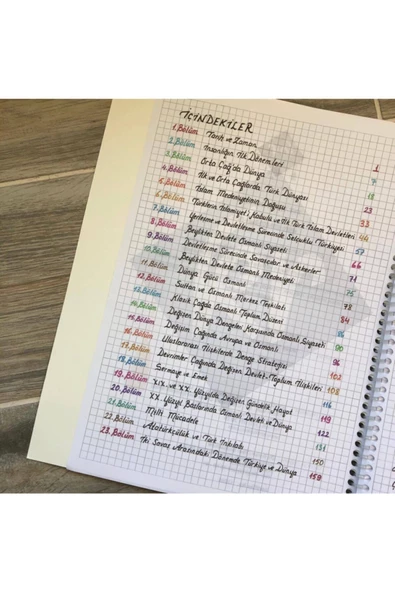 İÇİNDEKİLER
1.Bölüm Tarih ve Zaman 1
2.Bölüm İnsanlığın İlk Dönemleri
3.Bölüm Orta Çağ'da Dünya
4.Bölüm İlk ve Orta Çağlarda Türk Dünyası
5.Bölüm İslam Medeniyetinin Doğuşu 23
6.Bölüm Türklerin İslamiyet'i Kabulü ve İlk Türk İslam Devletleri 33
7.Bölüm Yerleşme ve Devletleşme Sürecinde Selçuklu Türkiyesi 44
8.Bölüm Beylikten Devlete Osmanlı Siyaseti 57
9.Bölüm Devletleşme Sürecinde Savaşçılar ve Askerler 66
10.Bölüm Beylikten Devlete Osmanlı Medeniyeti 71
11.Bölüm Dünya Gücü Osmanlı 75
12.Bölüm Sultan ve Osmanlı Merkez Teşkilatı 78
13.Bölüm Klasik Çağda Osmanlı Toplum Düzeni 84
14.Bölüm Değişen Dünya Dengeleri Karşısında Osmanlı Siyaseti 86
15.Bölüm Değişim Çağında Avrupa ve Osmanlı 90
16.Bölüm Uluslararası İlişkilerde Denge Stratejisi 96
17.Bölüm Devrimler Çağında Değişen Devlet-Toplum İlişkileri 102
18.Bölüm Sermaye ve Emek 108
19.Bölüm XIX. ve XX. Yüzyılda Değişen Gündelik Hayat 116
20.Bölüm XX. Yüzyıl Başlarında Osmanlı Devleti ve Dünya 119
21.Bölüm Milli Mücadele 122
22.Bölüm Atatürkçülük ve Türk İnkılabı 131
23.Bölüm İki Savaş Arasındaki Dönemde Türkiye ve Dünya 150
159